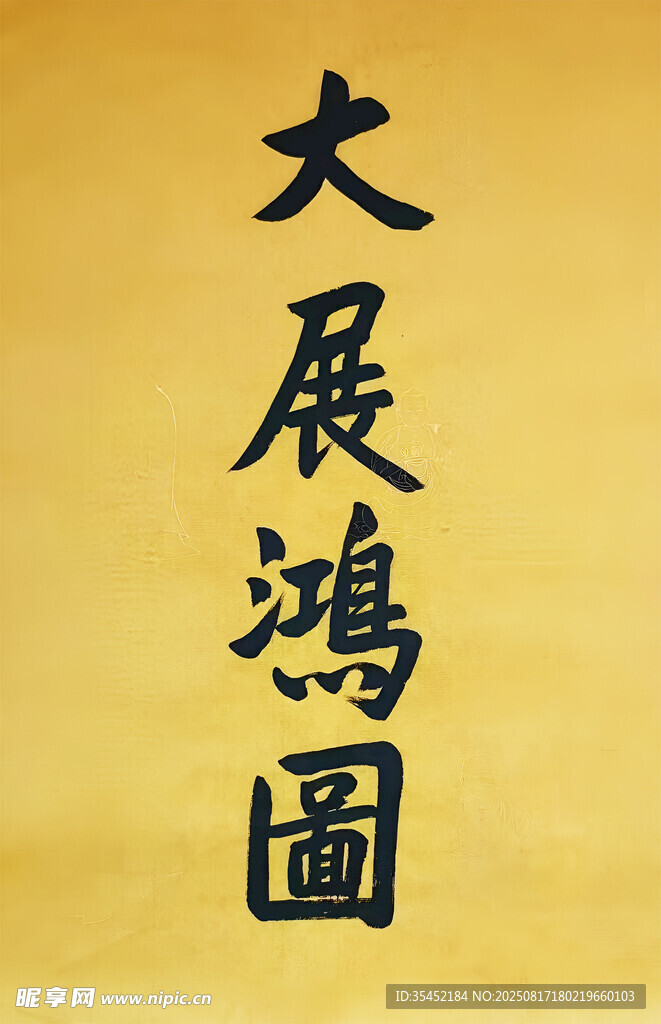 大展鴻圖
昵享网 www.nipic.cn
ID:35452184 NO:20250817180219660103